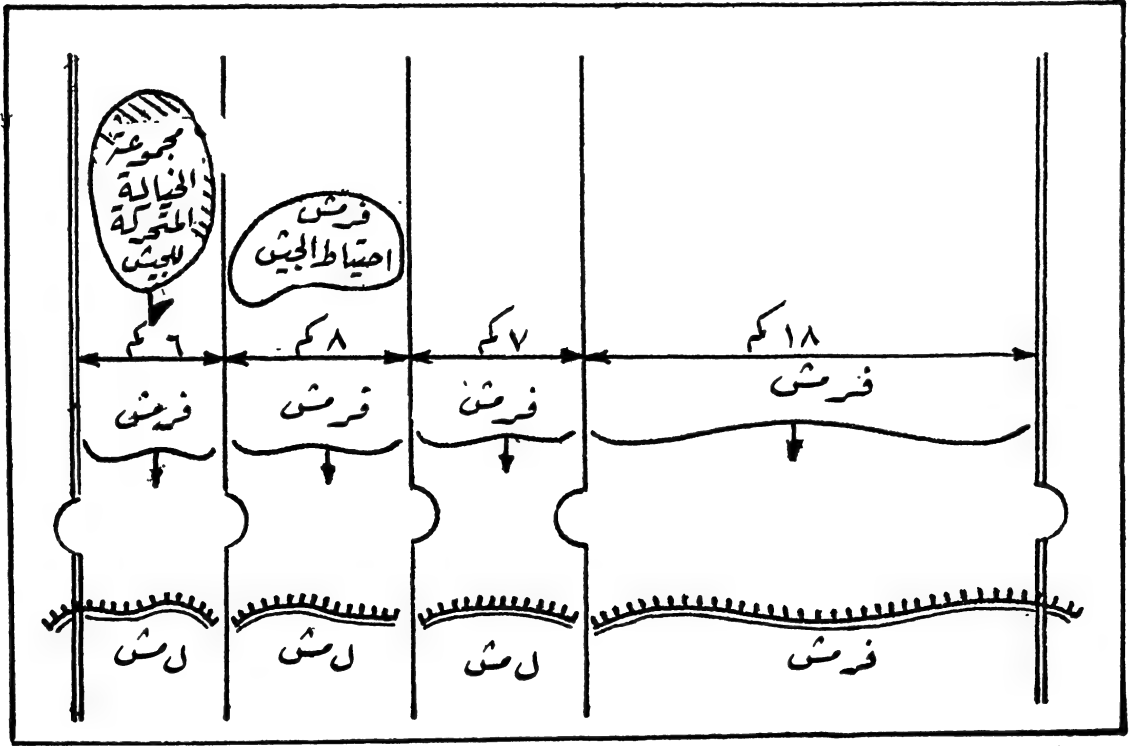 مجموعة
الخيالة
المتحركة
للجيش
فرمش
احتياط الجيش
١٨ كم
٧ كم
٨ كم
٦ كم
فرمش
فرمش
فرمش
فرمش
فرمش
ل مش
ل مش
ل مش